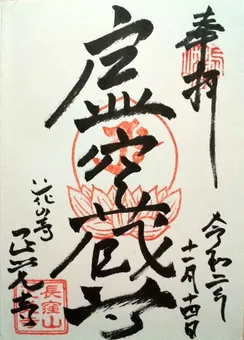 奉拝
令和二年
十一月十四日
虚空蔵尊
花の寺
正光寺
長窪山